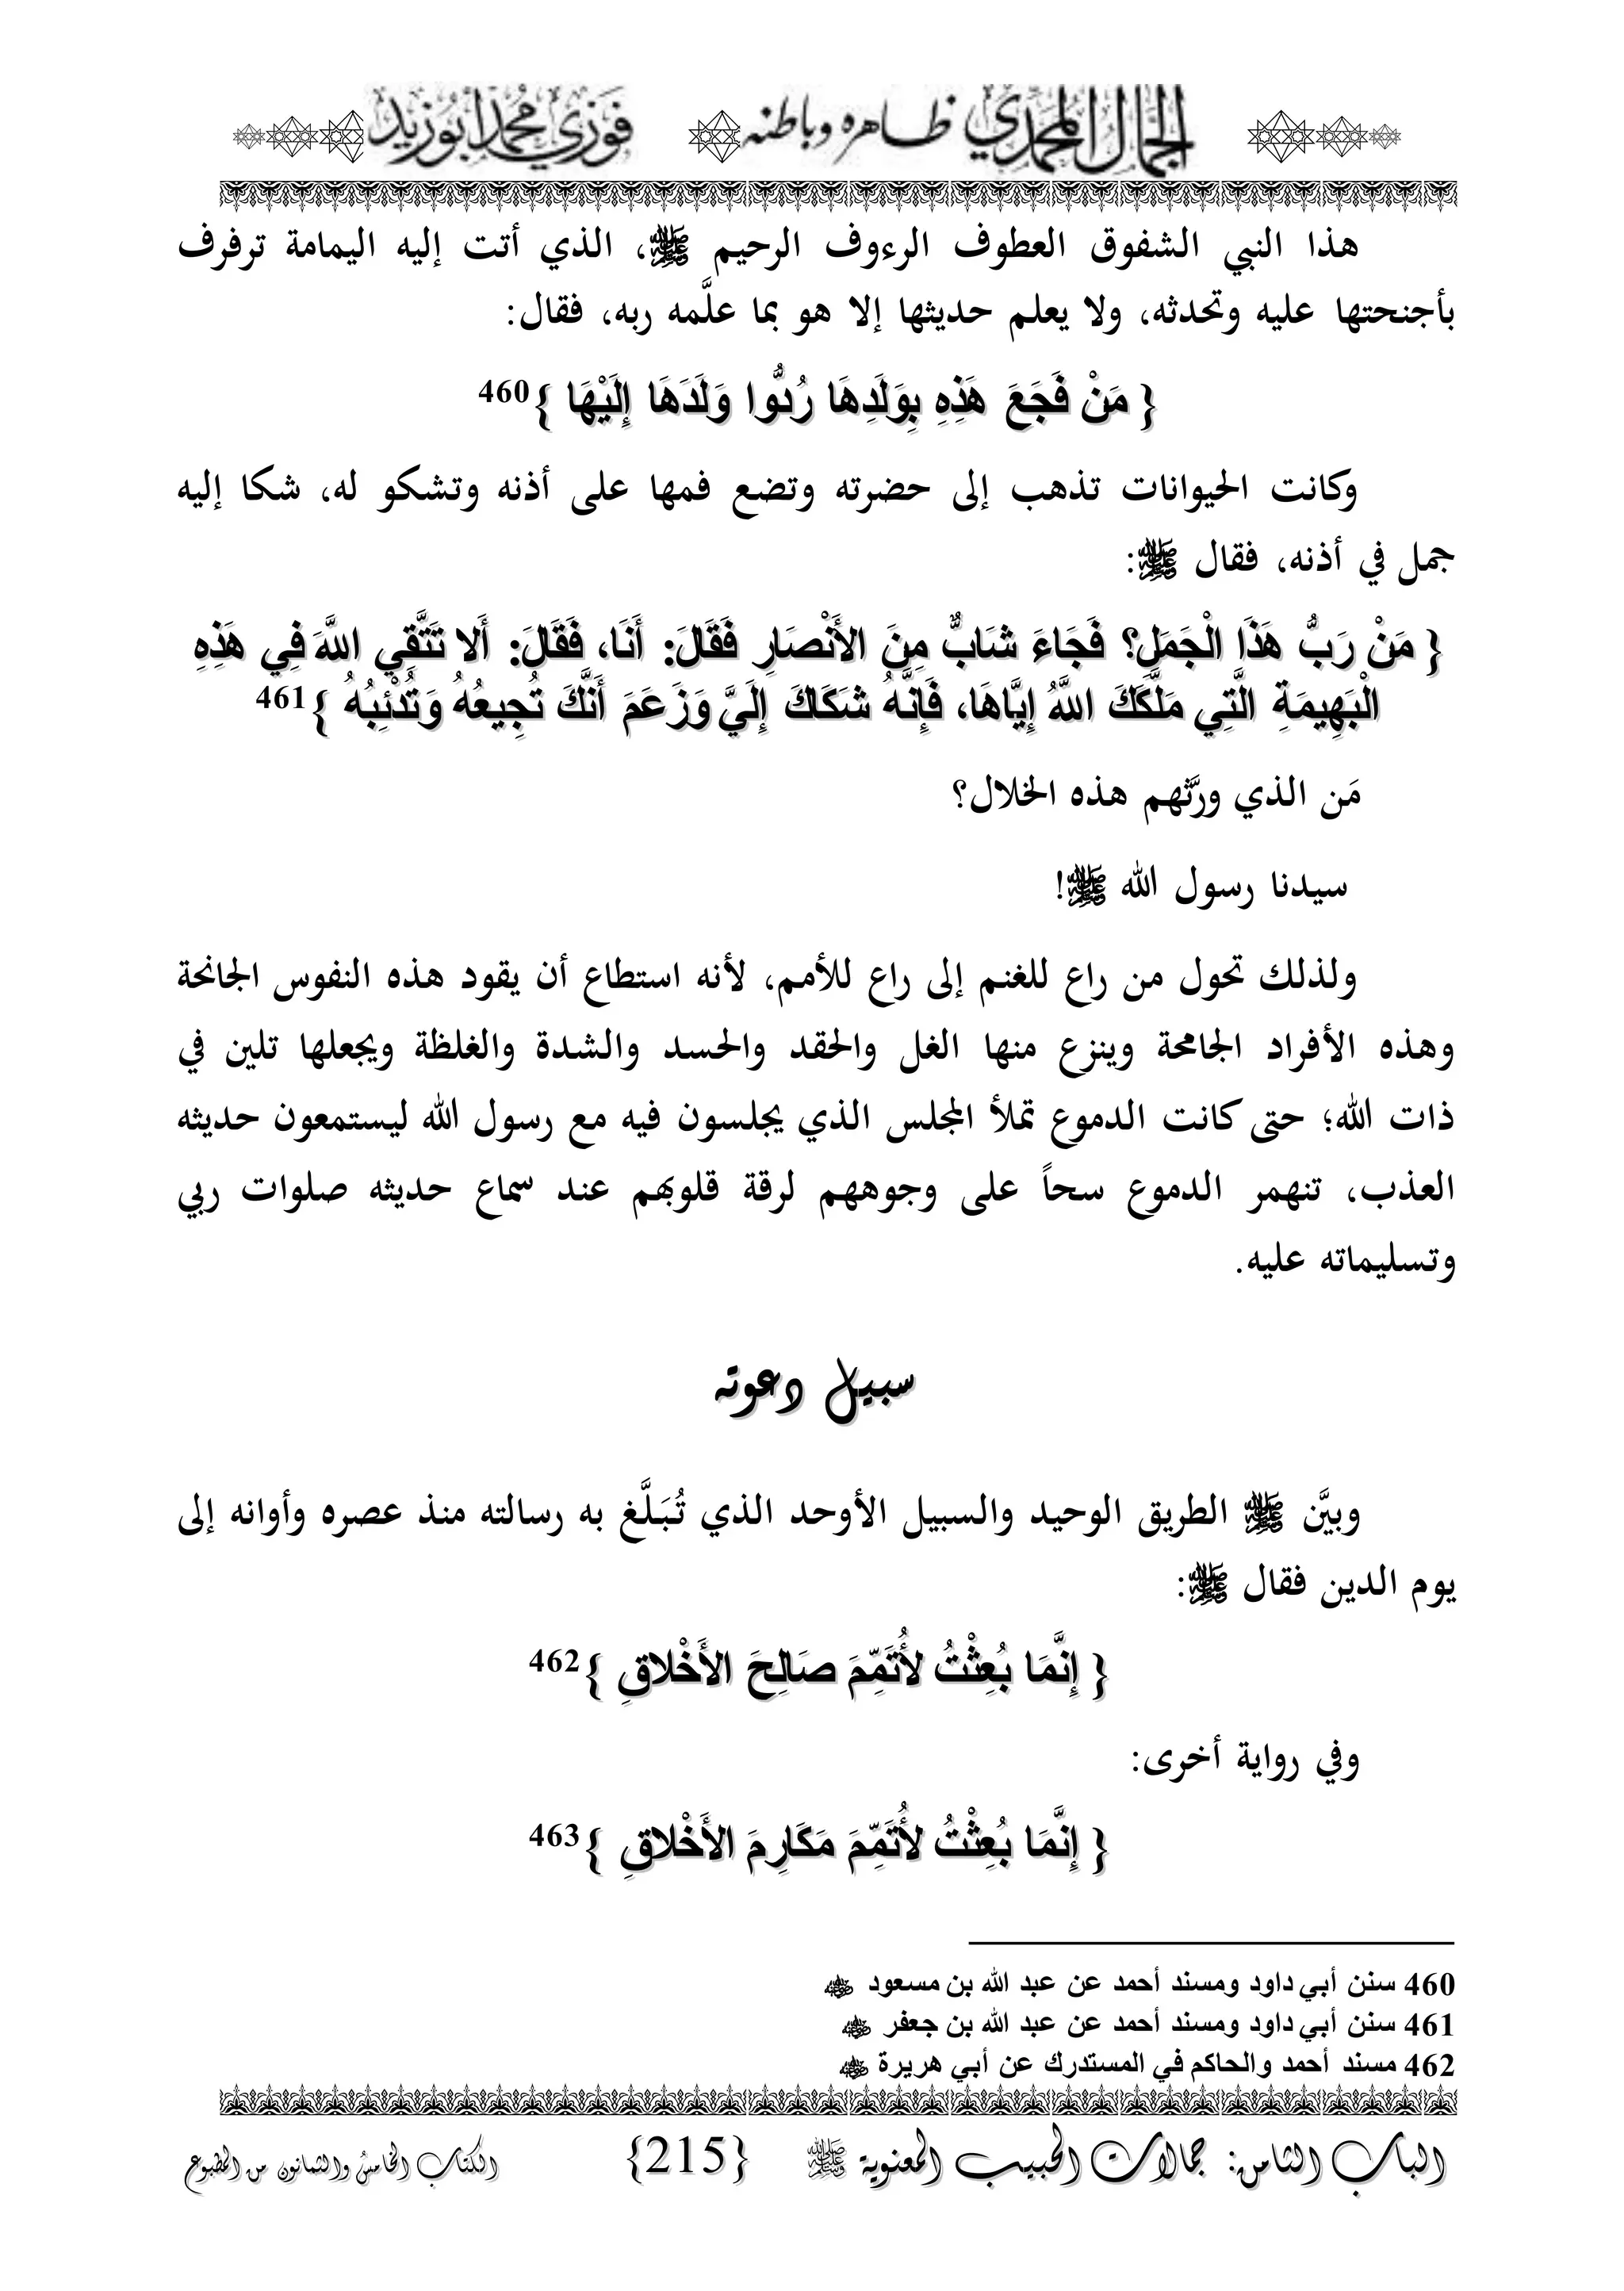 الجمال المحمدي ظاهره وباطنه فوزي محمد أبوزيد
هذا النبي الشفوق العطوف الرءوف الرحيم ﷺ، الذي أتت إليه اليمامة ترفرف
بأجنحتها عليه وتحدثه، ولا يعلم حديثها إلا هو بما علَّمه ربه، فقال:
{ مَنْ فَجَعَ هَذِهِ بِوَلَدِهَا رُدُّوا وَلَدَهَا إِلَيْهَا }460
وكانت الحيوانات تذهب إلى حضرته وتضع فمها على أذنه وتشكو له، شكا إليه
جمل في أذنه، فقال ﷺ:
{ مَنْ رَبُّ هَذَا الْجَمَلِ؟ فَجَاءَ شَابٌّ مِنَ الأَنْصَارِ فَقَالَ: أَنَا، فَقَالَ: أَلا تَتَّقِي اللَّهَ فِي هَذِهِ
الْبَهِيمَةِ الَّتِي مَلَّكَكَ اللَّهُ إِيَّاهَا، فَإِنَّهُ شَكَاكَ إِلَيَّ وَزَعَمَ أَنَّكَ تُجِيعُهُ وَتُدْئِبُهُ }461
مَن الذي ورَّثهم هذه الخلال؟
سيدنا رسول الله ﷺ!
ولذلك تحول من راع للغنم إلى راع للأمم، لأنه استطاع أن يقود هذه النفوس الجانحة
وهذه الأفراد الجامحة وينزع منها الغل والحقد والحسد والشدة والغلظة ويجعلها تلين في
ذات الله؛ حتى كانت الدموع تملأ المجلس الذي يجلسون فيه مع رسول الله ليستمعون حديثه
العذب، تنهمر الدموع سحاً على وجوههم لرقة قلوبهم عند سماع حديثه صلوات ربي
وتسليماته عليه.
سبيل دعوته
وبيَّن ﷺ الطريق الوحيد والسبيل الأوحد الذي تُبَلَّغ به رسالته منذ عصره وأوانه إلى
يوم الدين فقال ﷺ:
{ إِنَّمَا بُعِثْتُ لأُتَمِّمَ صَالِحَ الأَخْلاقِ }462
وفي رواية أخرى:
{ إِنَّمَا بُعِثْتُ لأُتَمِّمَ مَكَارِمَ الأَخْلاقِ }463
460 سنن أبي داود ومسند أحمد عن عبد الله بن مسعود ﷺ
461 سنن أبي داود ومسند أحمد عن عبد الله بن جعفر ﷺ
462 مسند أحمد والحاكم في المستدرك عن أبي هريرة ﷺ
الباب الثامن: جمالات الحبيب المعنوية ﷺ {215} الكتاب الخامس والثمانون من المطبوع